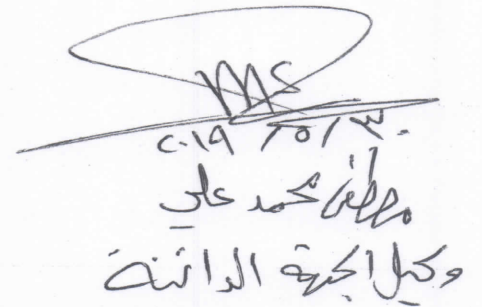 ٢٠١٩ / ٥ / ٣٠
مصطفى محمد علي
وكيل الجهة الدائنة